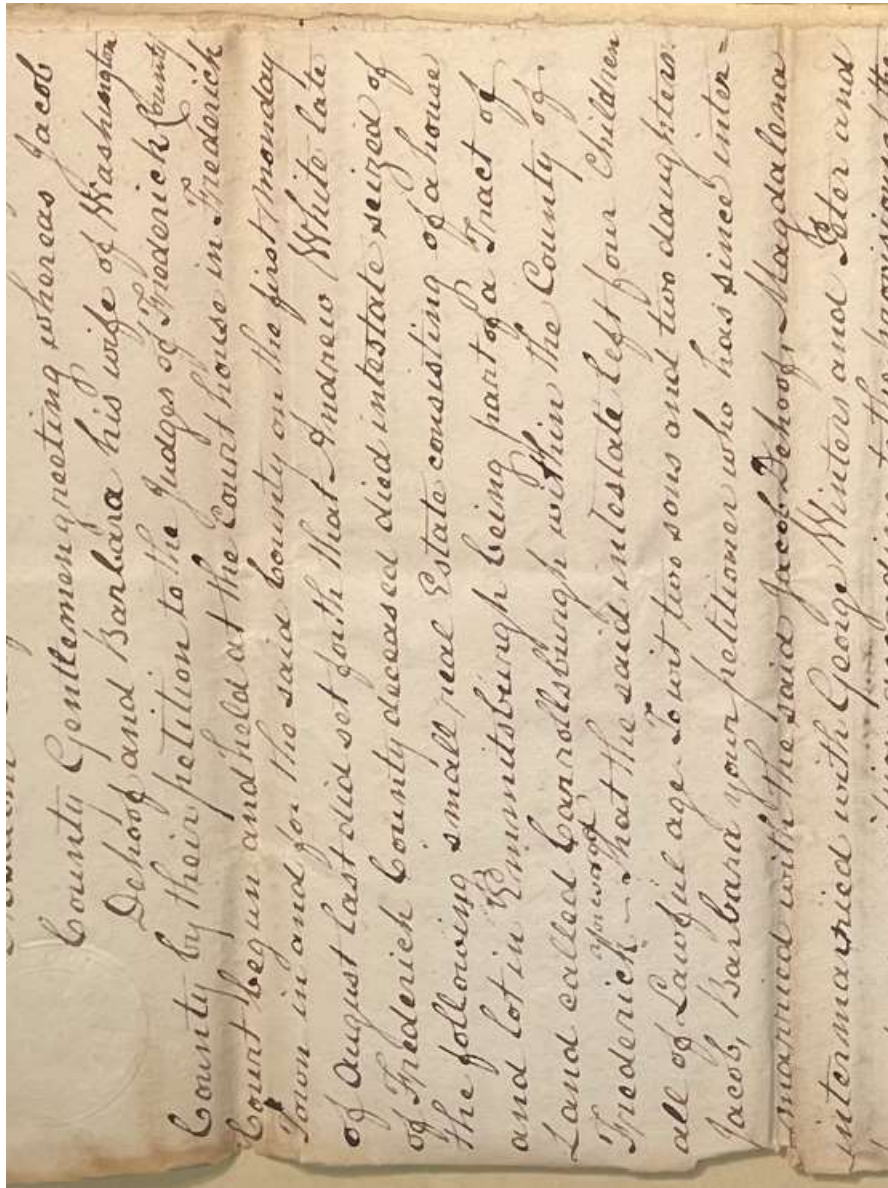 County Gentlemen greeting whereas Jacob
Dehoof and Barbara his wife of Washington
County by their petition to the Judges of Frederick County
Court begun and held at the Court house in Frederick
Town in and for the said County on the first monday
of August last did set forth that Andrew White late
of Frederick County deceased died intestate seized of
the following small real Estate consisting of a house
and lot in Emmitsburgh being part of a Tract of
Land called Carrollsburgh within the County of
aforesaid
Frederick - That the said intestate left four Children
all of Lawful age - To wit two sons and two daughters.
Jacob, Barbara your petitioner who has since inter=
married with the said Jacob Dehoof, Magdalena
intermarried with George Winters and Peter and